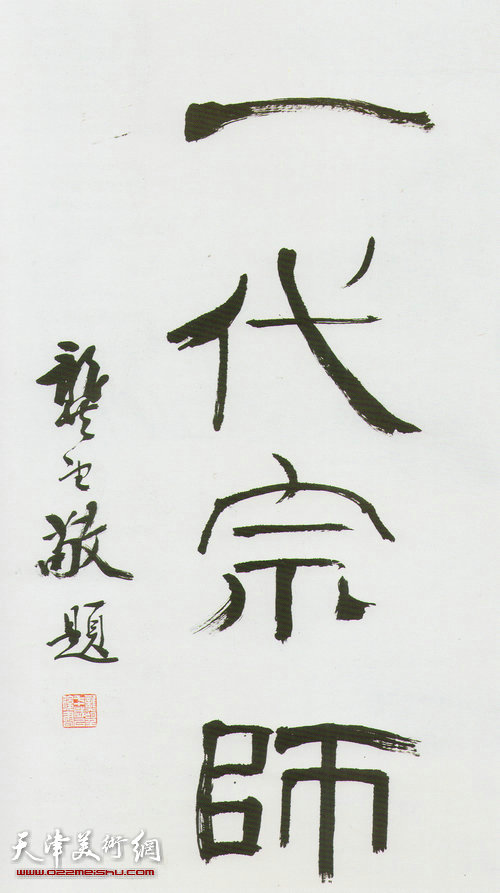 一代宗師
龔望敬題
天津美術網
www.022meishu.com